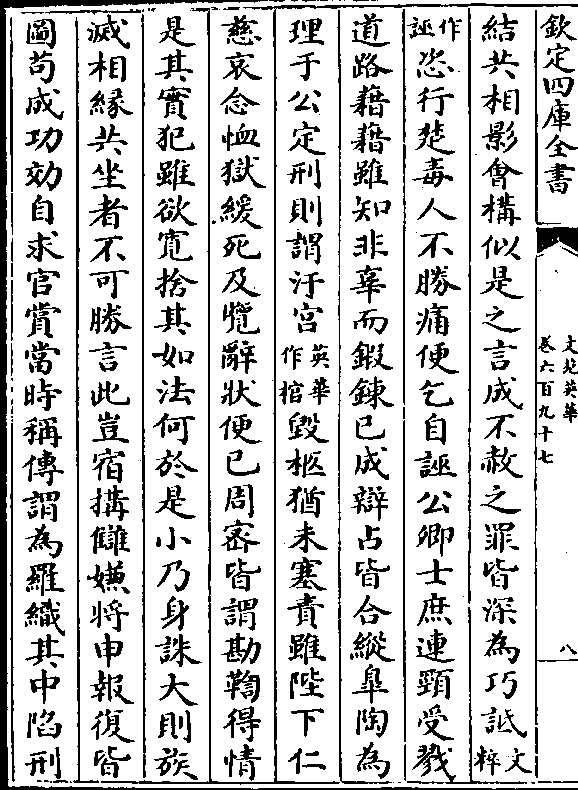 欽定四庫全書
文苑英華
卷六百九十七
八
結共相影會構似是之言成不赦之罪皆深為巧詆文粹
作誣恣行楚毒人不勝痛便乞自誣公卿士庶連頸受戮
道路藉藉雖知非辜而鍛鍊已成辯占皆合縱臯陶為
理于公定刑則謂汙宮英華作棺毀柩猶未塞責雖陛下仁
慈哀念恤獄緩死及覽辭狀便已周密皆謂勘鞫得情
是其實犯雖欲寛捨其如法何於是小乃身誅大則族
滅相緣共坐者不可勝言此豈宿搆讎嫌將申報復皆
圖苟成功効自求官賞當時稱傳謂為羅織其中陷刑